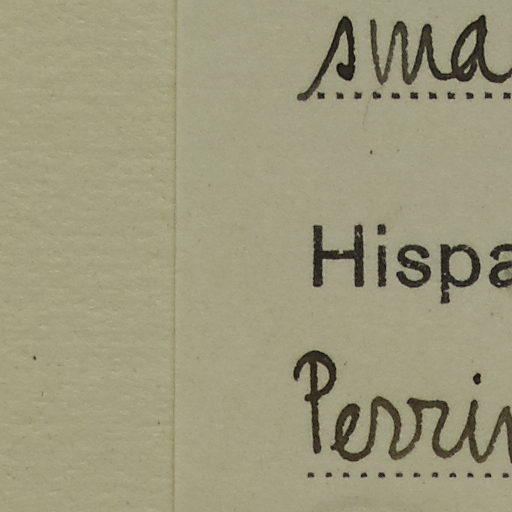 sma
Hispa
Perrin